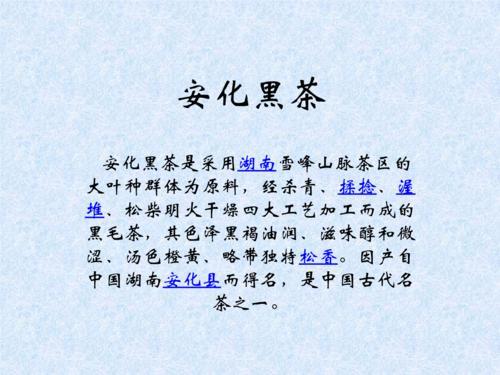 安化黑茶
安化黑茶是采用湖南雪峰山脉茶区的
大叶种群体为原料，经杀青、揉捻、渥
堆、松柴明火干燥四大工艺加工而成的
黑毛茶，其色泽黑褐油润、滋味醇和微
涩、汤色橙黄、略带独特松香。因产自
中国湖南安化县而得名，是中国古代名
茶之一。